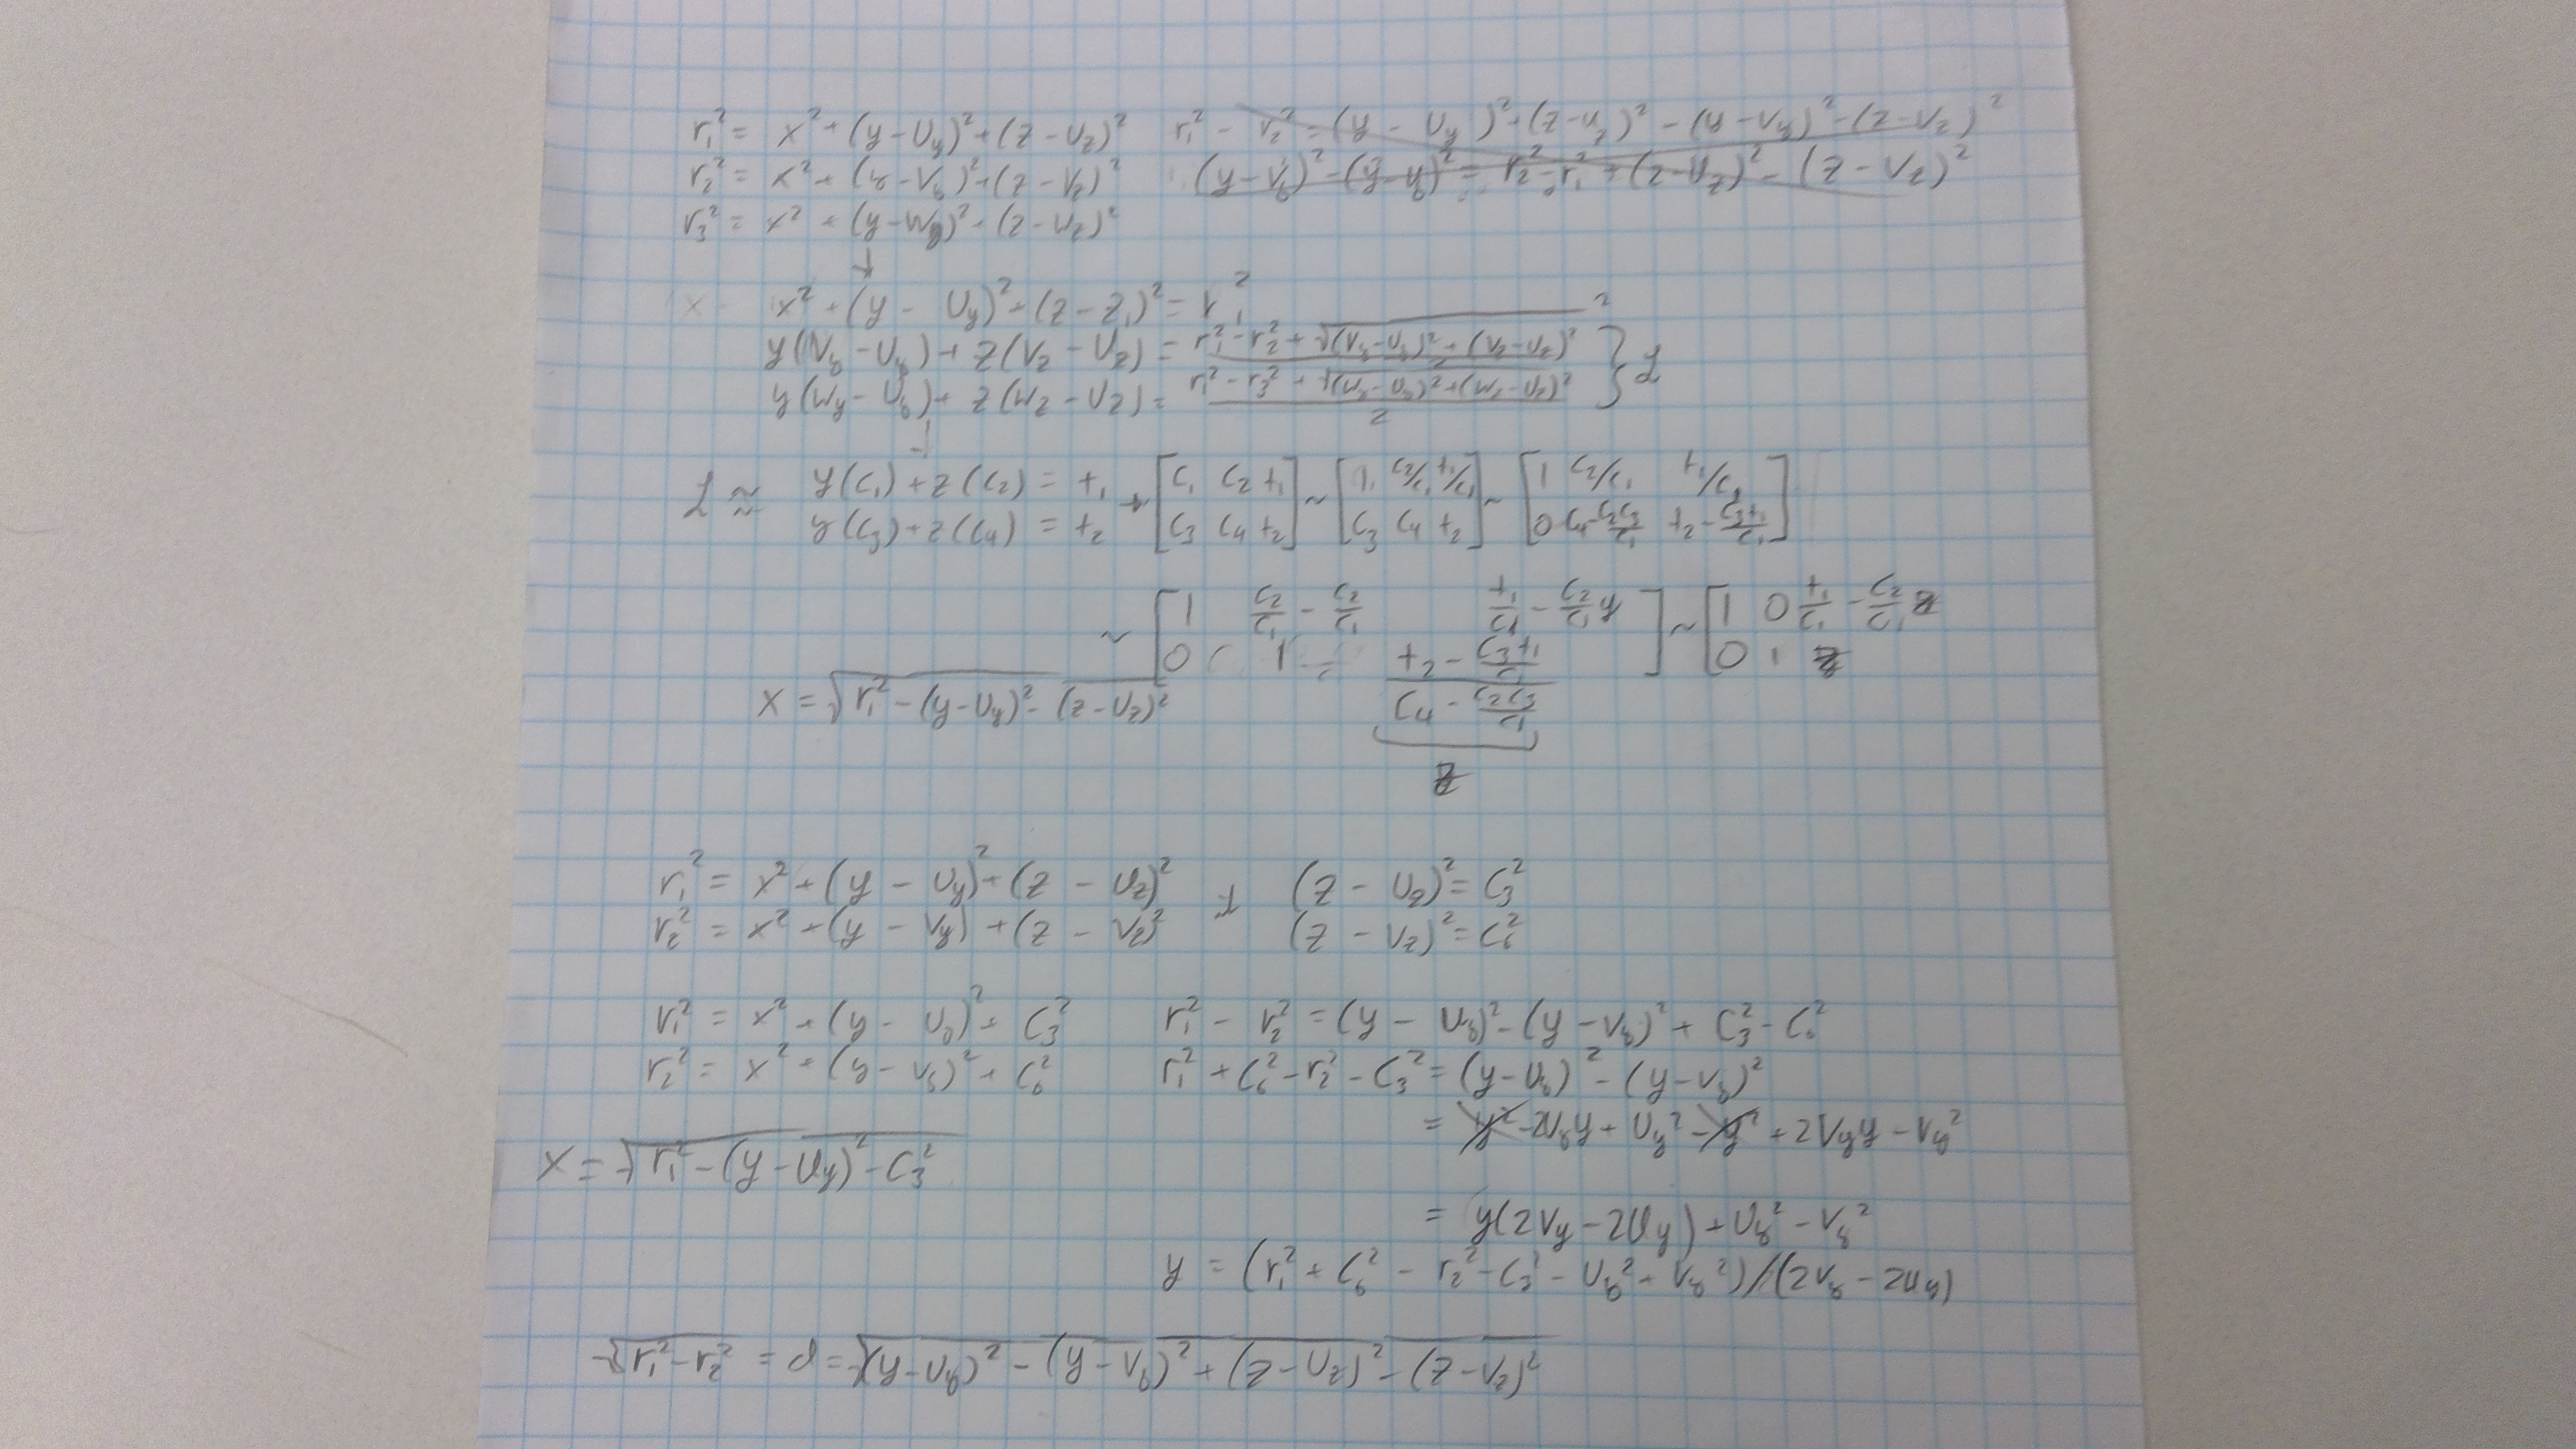 r₁² = x² + (y - Uy)² + (z - Uz)²   r₁² - r₂² = (y - Uy)² + (z - Uz)² - (y - Vy)² - (z - Vz)²
r₂² = x² + (y - Vy)² + (z - Vz)²   (y - Vy)² - (y - Uy)² = r₂² - r₁² + (z - Uz)² - (z - Vz)²
r₃² = x² + (y - Wy)² + (z - Wz)²
↓
x² + (y - Uy)² + (z - z₁)² = r₁²
y(Vy - Uy) + z(Vz - Uz) = (r₁² - r₂² + √((Vy - Uy)² + (Vz - Uz)²)²)/2
y(Wy - Uy) + z(Wz - Uz) = (r₁² - r₃² + √((Wy - Uy)² + (Wz - Uz)²)²)/2 } L
↓
L ≈ y(C₁) + z(C₂) = t₁ → [C₁ C₂ t₁] ~ [1 C₂/C₁ t₁/C₁] ~ [1 C₂/C₁ t₁/C₁]
y(C₃) + z(C₄) = t₂ [C₃ C₄ t₂] [C₃ C₄ t₂] [0 C₄ - C₂C₃/C₁ t₂ - C₃t₁/C₁]
~ [1 C₂/C₁ - C₂/C₁ t₁/C₁ - C₂/C₁ y] ~ [1 0 t₁/C₁ - C₂/C₁ z]
[0 1 (t₂ - C₃t₁/C₁)/(C₄ - C₂C₃/C₁)] [0 1 z]
x = √(r₁² - (y - Uy)² - (z - Uz)²)
z
r₁² = x² + (y - Uy)² + (z - Uz)² → (z - Uz)² = C₃²
r₂² = x² + (y - Vy) + (z - Vz)² (z - Vz)² = C₆²
r₁² = x² + (y - Uy)² + C₃²   r₁² - r₂² = (y - Uy)² - (y - Vy)² + C₃² - C₆²
r₂² = x² + (y - Vy)² + C₆²   r₁² + C₆² - r₂² - C₃² = (y - Uy)² - (y - Vy)²
= y² - 2Uyy + Uy² - y² + 2Vyy - Vy²
x = √(r₁² - (y - Uy)² - C₃²)
= y(2Vy - 2Uy) + Uy² - Vy²
y = (r₁² + C₆² - r₂² - C₃² - Uy² + Vy²)/(2Vy - 2Uy)
√(r₁² - r₂²) = d = √((y - Uy)² - (y - Vy)² + (z - Uz)² - (z - Vz)²)